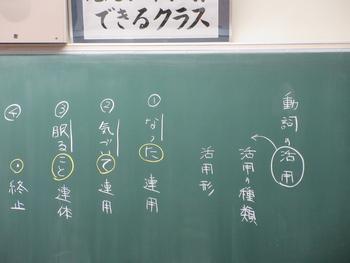 できるクラス
動詞の活用
活用の種類
活用形
① なった 連用
② 気づいて 連用
③ 眠ること 連体
④ 。 終止